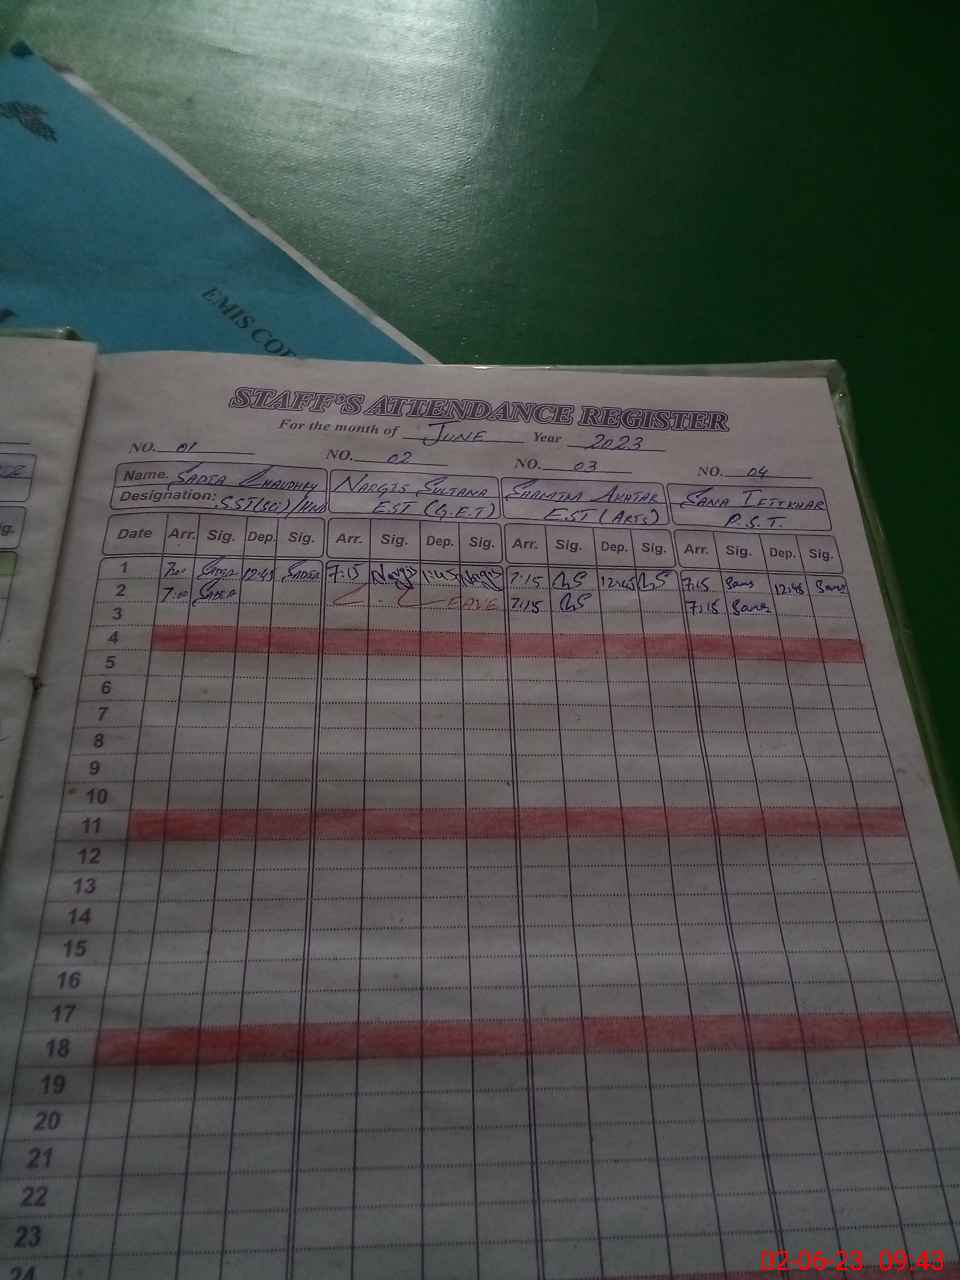 EMIS COD
STAFF'S ATTENDANCE REGISTER
For the month of JUNE Year 2023
NO. 01 NO. 02 NO. 03 NO. 04
Name. SADIA CHAUDHRY NARGIS SULTANA SHAMIM AKHTAR SANA IFTIKHAR
Designation: SST(SCI)/HM EST (G.E.T) EST (ARTS) P.S.T.
Date Arr. Sig. Dep. Sig. Arr. Sig. Dep. Sig. Arr. Sig. Dep. Sig. Arr. Sig. Dep. Sig.
1 7:00 SADIA 12:45 SADIA 7:15 Nargis 1:45 Nargis 7:15 12:45 7:15 Sana 12:45 Sana
2 7:00 SADIA LEAVE 7:15 7:15 Sana
3
4
5
6
7
8
9
10
11
12
13
14
15
16
17
18
19
20
21
22
23
24
02-06-23 09:43